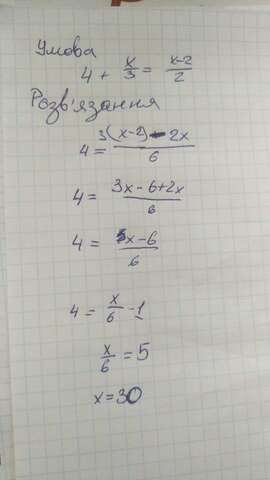 Умова
4 + x/3 = x-2/2
Розв'язання
4 = 3(x-2)-2x/6
4 = 3x-6+2x/6
4 = x-6/6
4 = x/6 - 1
x/6 = 5
x=30